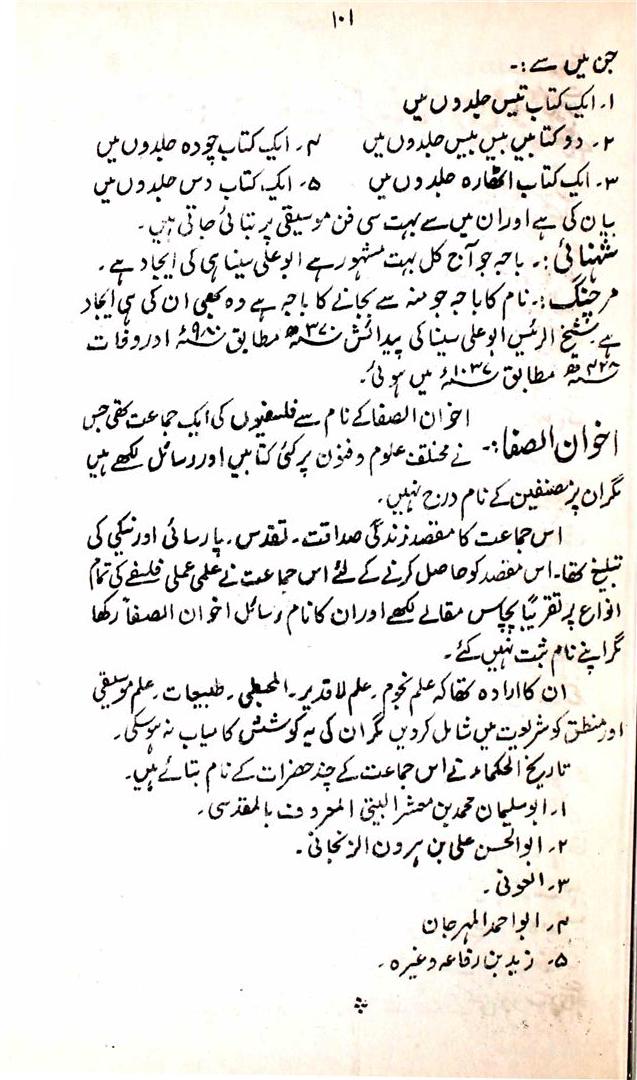 ۱۰۱
جن میں سے :-
۱۔ ایک کتاب تیس جلدوں میں
۲۔ دو کتابیں بیس بیس جلدوں میں ۴۔ ایک کتاب چودہ جلدوں میں
۳۔ ایک کتاب اٹھارہ جلدوں میں ۵۔ ایک کتاب دس جلدوں میں
بیان کی ہے اور ان میں سے بہت سی فن موسیقی پر بتائی جاتی ہیں۔
شہنائی :۔ باجہ جو آج کل بہت مشہور ہے ابو علی سینا ہی کی ایجاد ہے۔
مرچنگ :۔ نام کا باجہ جو منہ سے بجانے کا باجہ ہے وہ بھی ان کی ہی ایجاد
ہے شیخ الرئیس ابو علی سینا کی پیدائش ۳۷۰ھ مطابق ۹۸۰ء اور وفات
۴۲۸ھ مطابق ۱۰۳۷ء میں ہوئی۔
اخوان الصفا کے نام سے فلسفیوں کی ایک جماعت تھی جس
اخوان الصفا :۔ نے مختلف علوم و فنون پر کئی کتابیں اور رسائل لکھے ہیں
مگر ان پر مصنفین کے نام درج نہیں۔
اس جماعت کا مقصد زندگی صداقت ۔ تقدس ۔ پارسائی اور نیکی کی
تبلیغ تھا۔ اس مقصد کو حاصل کرنے کے لئے اس جماعت نے علمی عملی فلسفے کی تمام
انواع پر تقریباً پچاس مقالے لکھے اور ان کا نام رسائل اخوان الصفا رکھا
مگر اپنے نام ثبت نہیں کئے۔
ان کا ارادہ تھا کہ علم نجوم ۔ علم لاقدیر ۔ المحبطی ۔ طبیعات ۔ علم موسیقی
اور منطق کو شریعت میں شامل کردیں مگر ان کی یہ کوشش کامیاب نہ ہوسکی۔
تاریخ الحکماء نے اس جماعت کے چند حضرات کے نام بتائے ہیں۔
۱۔ ابو سلیمان محمد بن معشر البیتی المعروف بالمقدسی۔
۲۔ ابوالحسن علی بن ہرون الزنجانی۔
۳۔ العوفی۔
۴۔ ابو احمد المہرجان
۵۔ زید بن رفاعہ وغیرہ۔